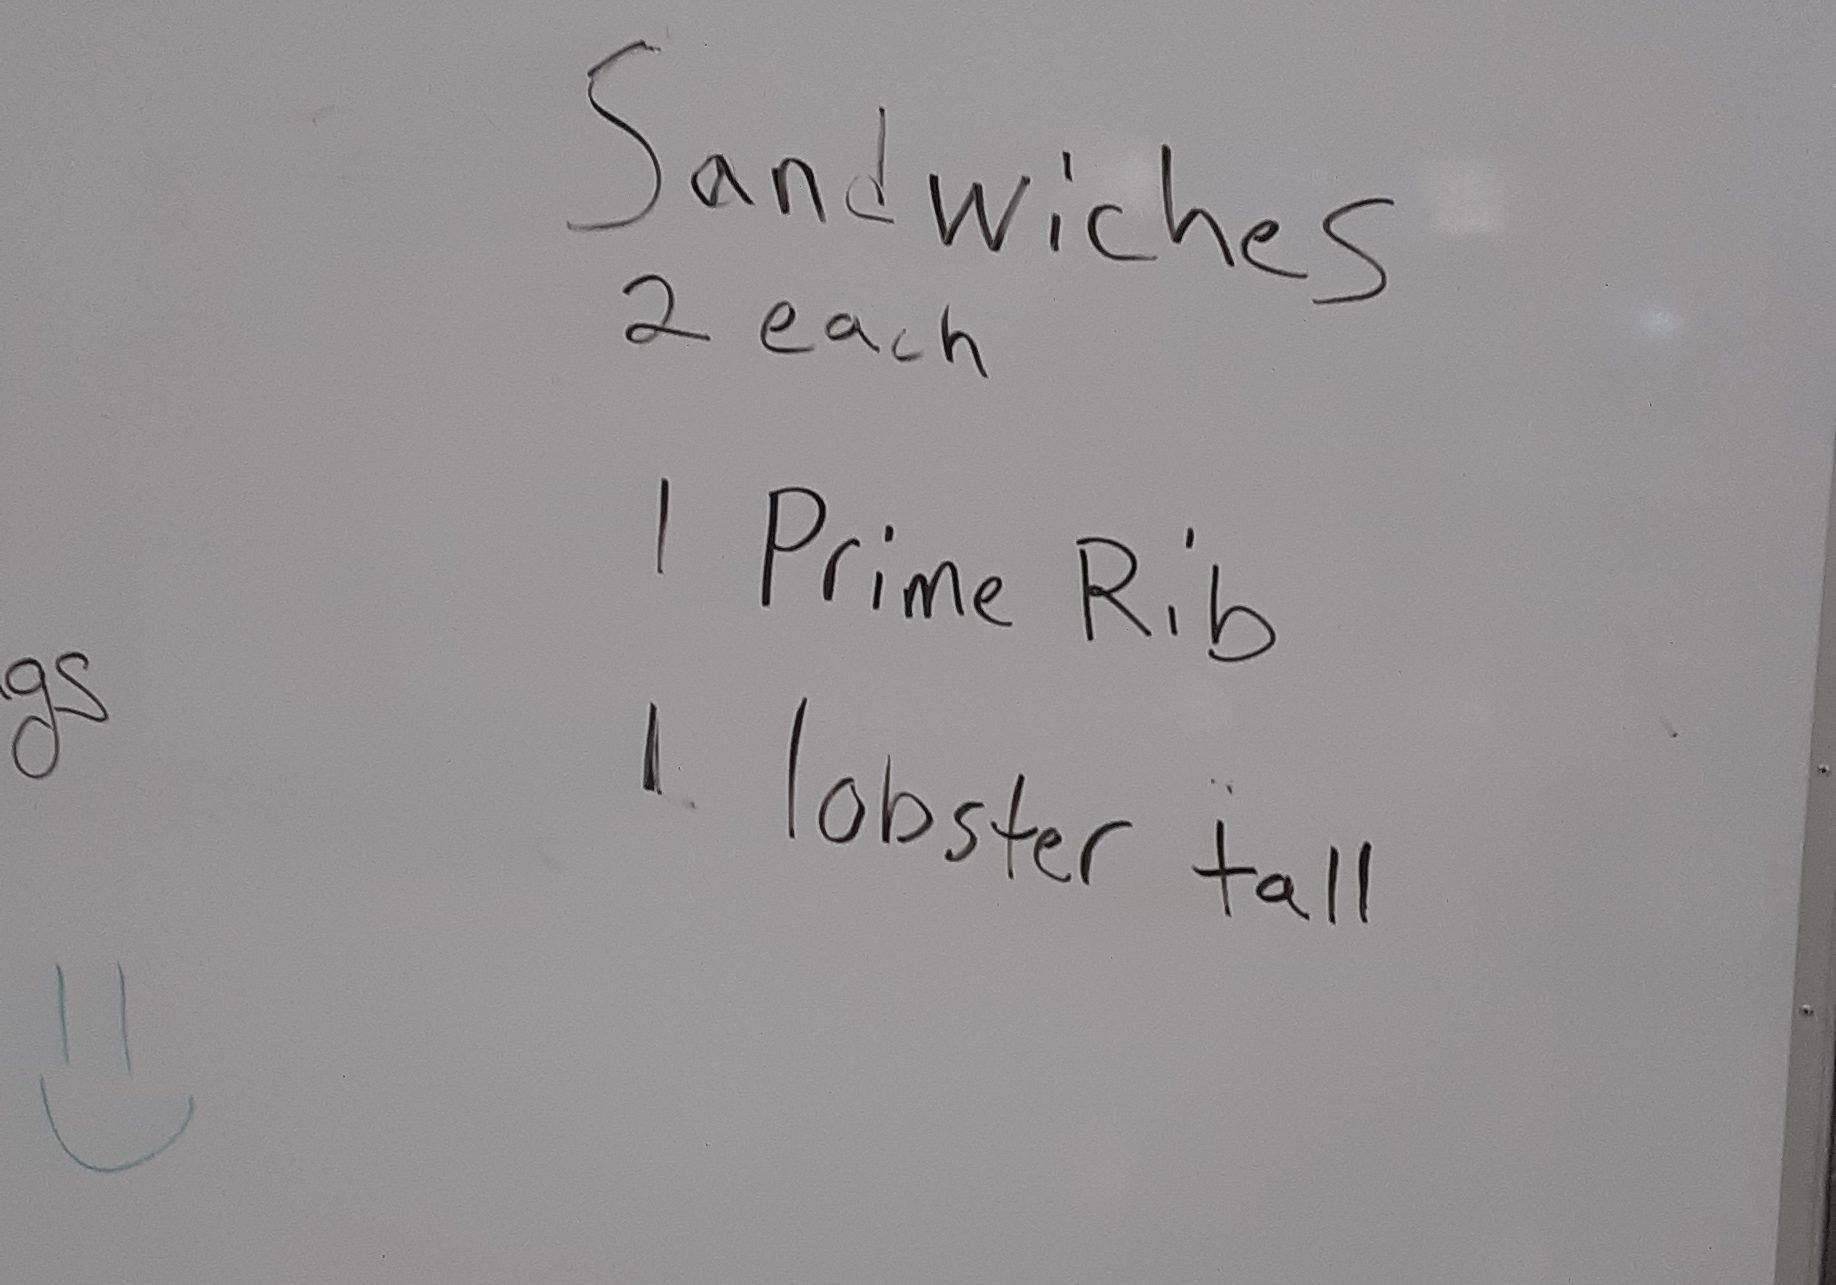 Sandwiches
2 each
1 Prime Rib
1 lobster tall
gs